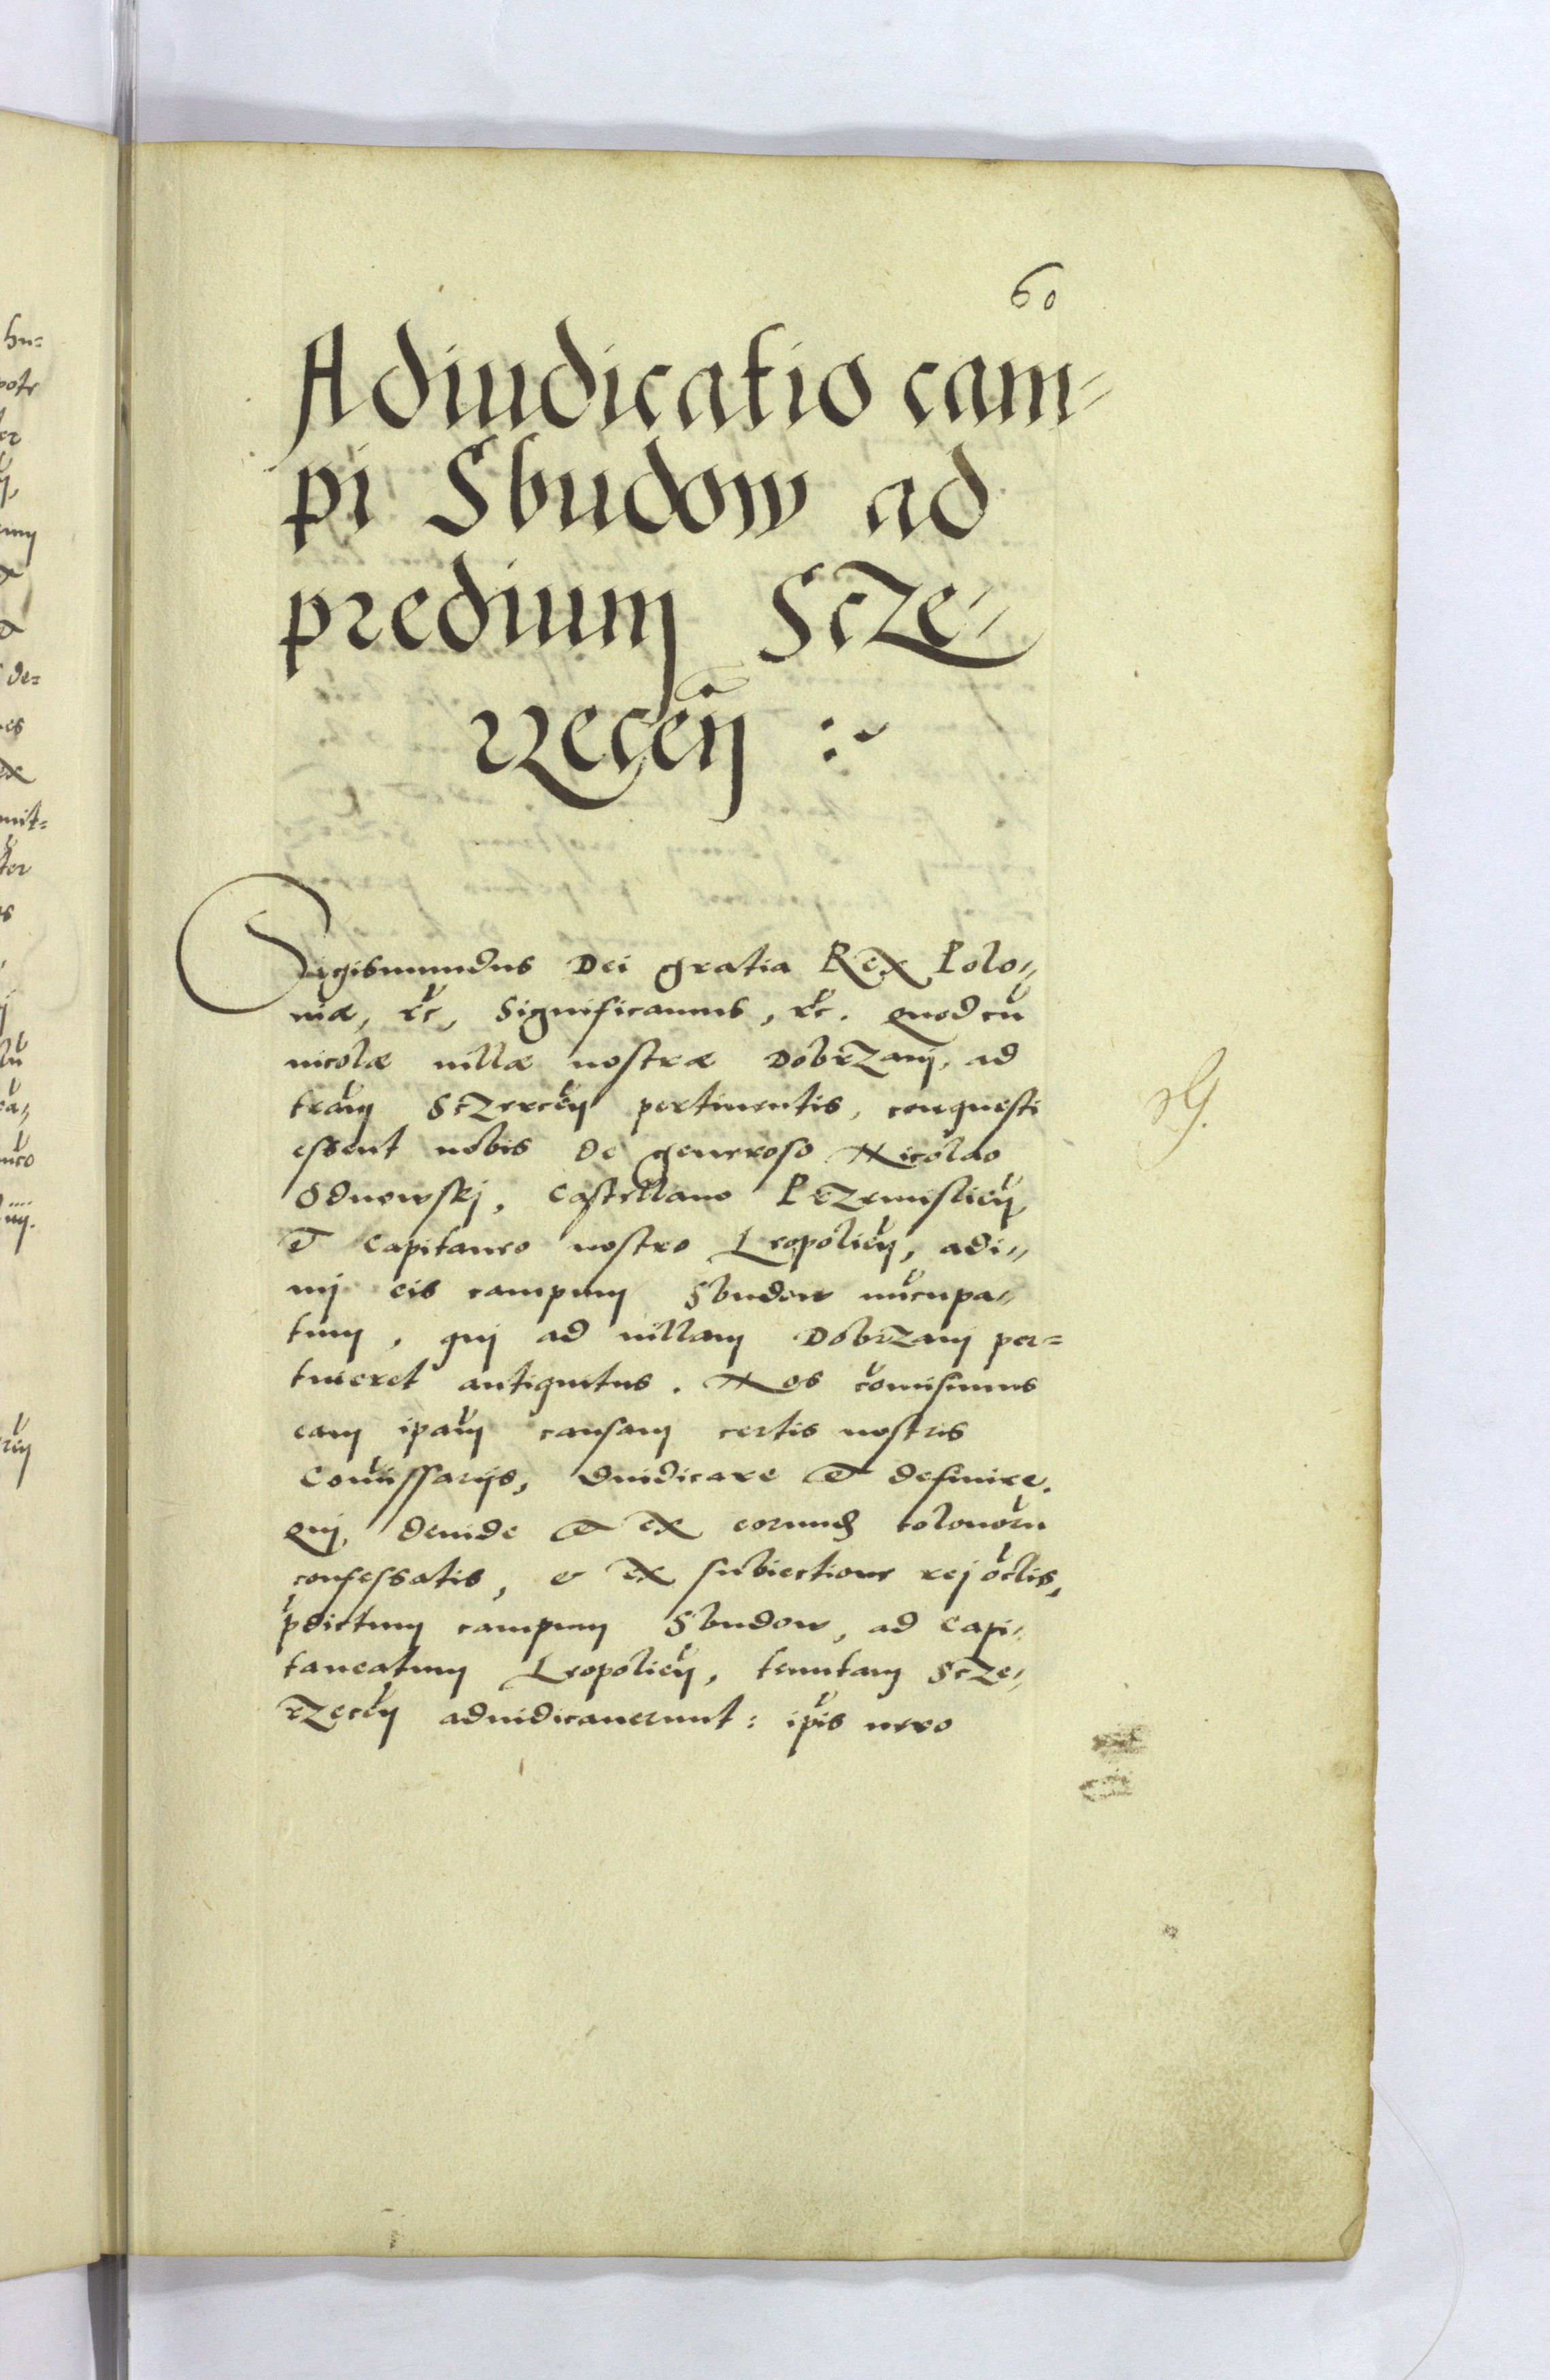 60
Adiudicatio cam=
pi Sbudow ad
predium Scze=
rzecen̄ :~
Sigismundus Dei gratia Rex Polo=
niæ, ꝛc̄, Significamus, ꝛc̄. Quod cū
incolæ uillæ nostræ Dobrzanj, ad
trām Sczercēn pertinentis, conquesti
essent nobis de generoso Nicolao
Odnowskj, Castellano Przemislien̄,
et Capitaneo nostro Leopolien̄, adi=
mj eis campum Sbudow nūcupa=
tum, quj ad uillam Dobrzanj per=
tineret antiquitus. Nos comīsimus
eam ipām causam certis nostris
Comīssarijs, diiudicare et definire.
Quj, deinde et ex eorund colonorū
confessatis, & ex subiectione rej oclis,
pdictum campum Sbudow, ad Capi=
taneatum Leopolien̄, tenutam Scze=
rzecēn adiudicauerunt: ip̄is uero